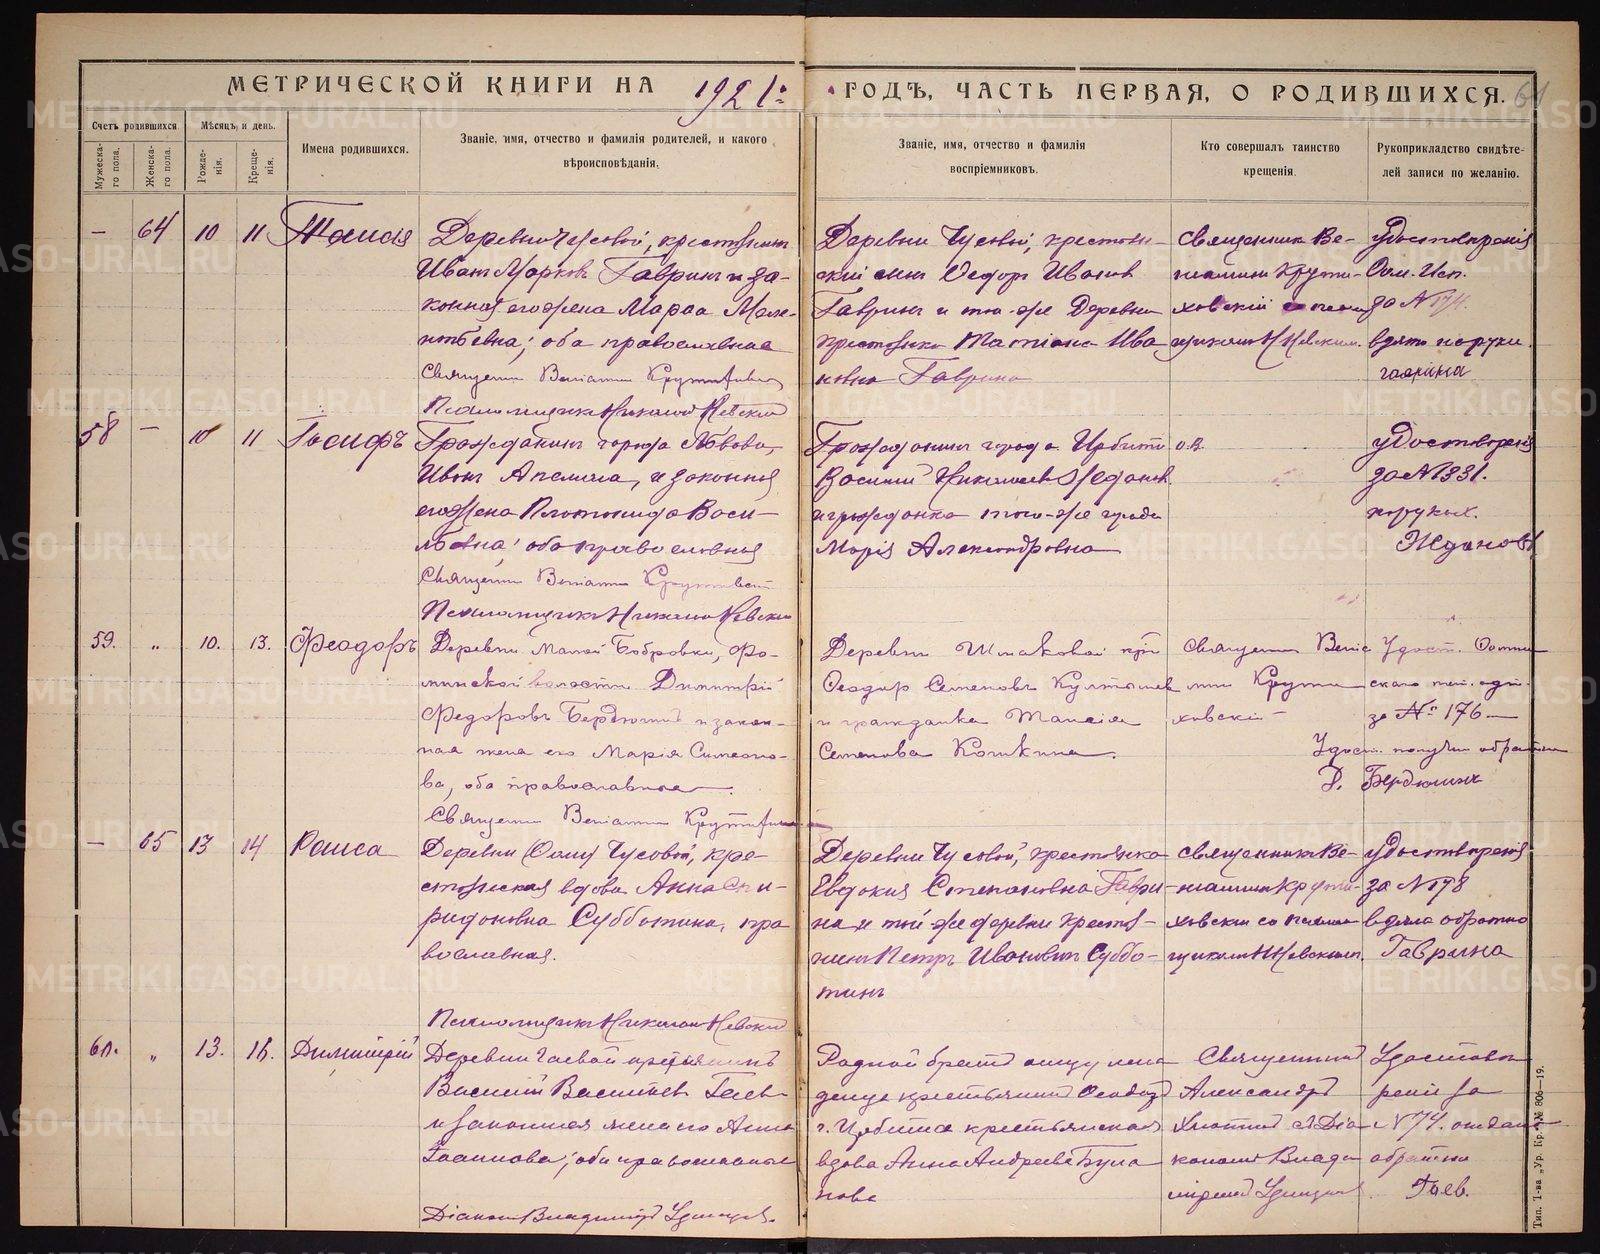 МЕТРИЧЕСКОЙ КНИГИ НА 1921 г.
ГОДЪ, ЧАСТЬ ПЕРВАЯ, О РОДИВШИХСЯ.
Счетъ родившихся.
Мѣсяцъ и день.
Мужеска-го пола.
Женска-го пола.
Рожде-нія.
Креще-нія.
Имена родившихся.
Званіе, имя, отчество и фамилія родителей, и какого
вѣроисповѣданія.
Званіе, имя, отчество и фамилія
воспріемниковъ.
Кто совершалъ таинство
крещенія.
Рукоприкладство свидѣте-
лей записи по желанію.
— 64 10 11 Таисія
Деревни Чусовой, крестьянинъ
Иванъ Марковъ Гавринъ и за-
конная его жена Марѳа
оба православные
Священникъ
Псаломщикъ Николай Невскій
Деревни Чусовой, крестьян-
скій сынъ Ѳедоръ Ивановъ
Гавринъ и той-же Деревни
крестьянка Татіана Ива
новна Гаврина
Священникъ Ве-
ніаминъ Крути-
ховскій съ псалом
щикомъ Н Невскимъ
удостовѣреніе
за № 174.
взято на руки
гаврина
58 — 10 11 Іосифъ
Гражданинъ города Львова,
Иванъ и законная
его жена Васи-
льевна; оба православные
Священникъ
Псаломщикъ Николай Невскій
Гражданинъ города Ирбита
Василій Николаевъ Ждановъ
и гражданка того-же города
Марія Александровна
удостовѣреніе
за № 1331.
Жданова
59. " 10. 13. Феодоръ
Деревни Малой Бобровки, Фо-
минской волости Димитрій
Федоровъ Бердюгинъ и закон-
ная жена его Марія Симеоно-
ва, оба православные.
Священникъ
Деревни Шмаковой кр.
Ѳеодор Семеновъ Култышев
и гражданка Таисія
Семенова Кошкина.
Священникъ Веніа
мин Крути
ховскій
Удост.
за № 176
Удост. получил обратно
Бердюгинъ
— 65 13 14 Раиса
Деревни Чусовой, кре-
стьянская вдова Анна Спи-
ридоновна Субботина, пра
вославная.
Псаломщикъ Николай Невскій
Деревни Чусовой, крестьянка
Евдокія Степановна Гаври-
на и той же деревни крестья-
нинъ Петръ Ивановичъ Суббо-
тинъ
Священникъ Ве-
ніаминъ Крути-
ховскій со псалом
щикомъ Н Невскимъ.
удостовѣреніе
за № 178
взяла обратно
Гаврина
60. " 13. 16. Димитрій
Деревни Гаевой крестьянинъ
Василій Васильевъ Гаевъ
и законная жена его Анна
Іоаннова; оба православные
Діаконъ Владиміръ
Родной братъ отцу мла
денца крестьянинъ Ѳеодоръ
г. Ирбита крестьянская
вдова Анна Андреева Була
нова
Священникъ
Александръ
съ Діа
кономъ Влади
міромъ
Удостовѣ
реніе за
№ 74. отдано
обратно
Гаев.
Тип. Т-ва „Ур. Кр." № 806—19.
METRIKI.GASO-URAL.RU